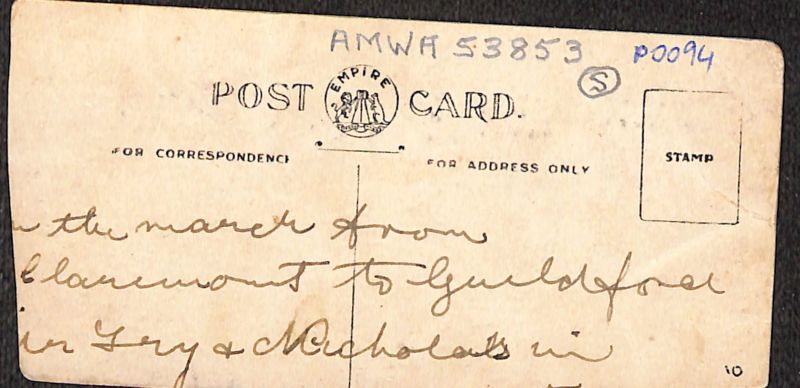 AMWA 53853 P0094
S
POST EMPIRE CARD.
FOR CORRESPONDENCE FOR ADDRESS ONLY
STAMP
the march from
Claremont to Guildford
Fry & Nicholas in
10